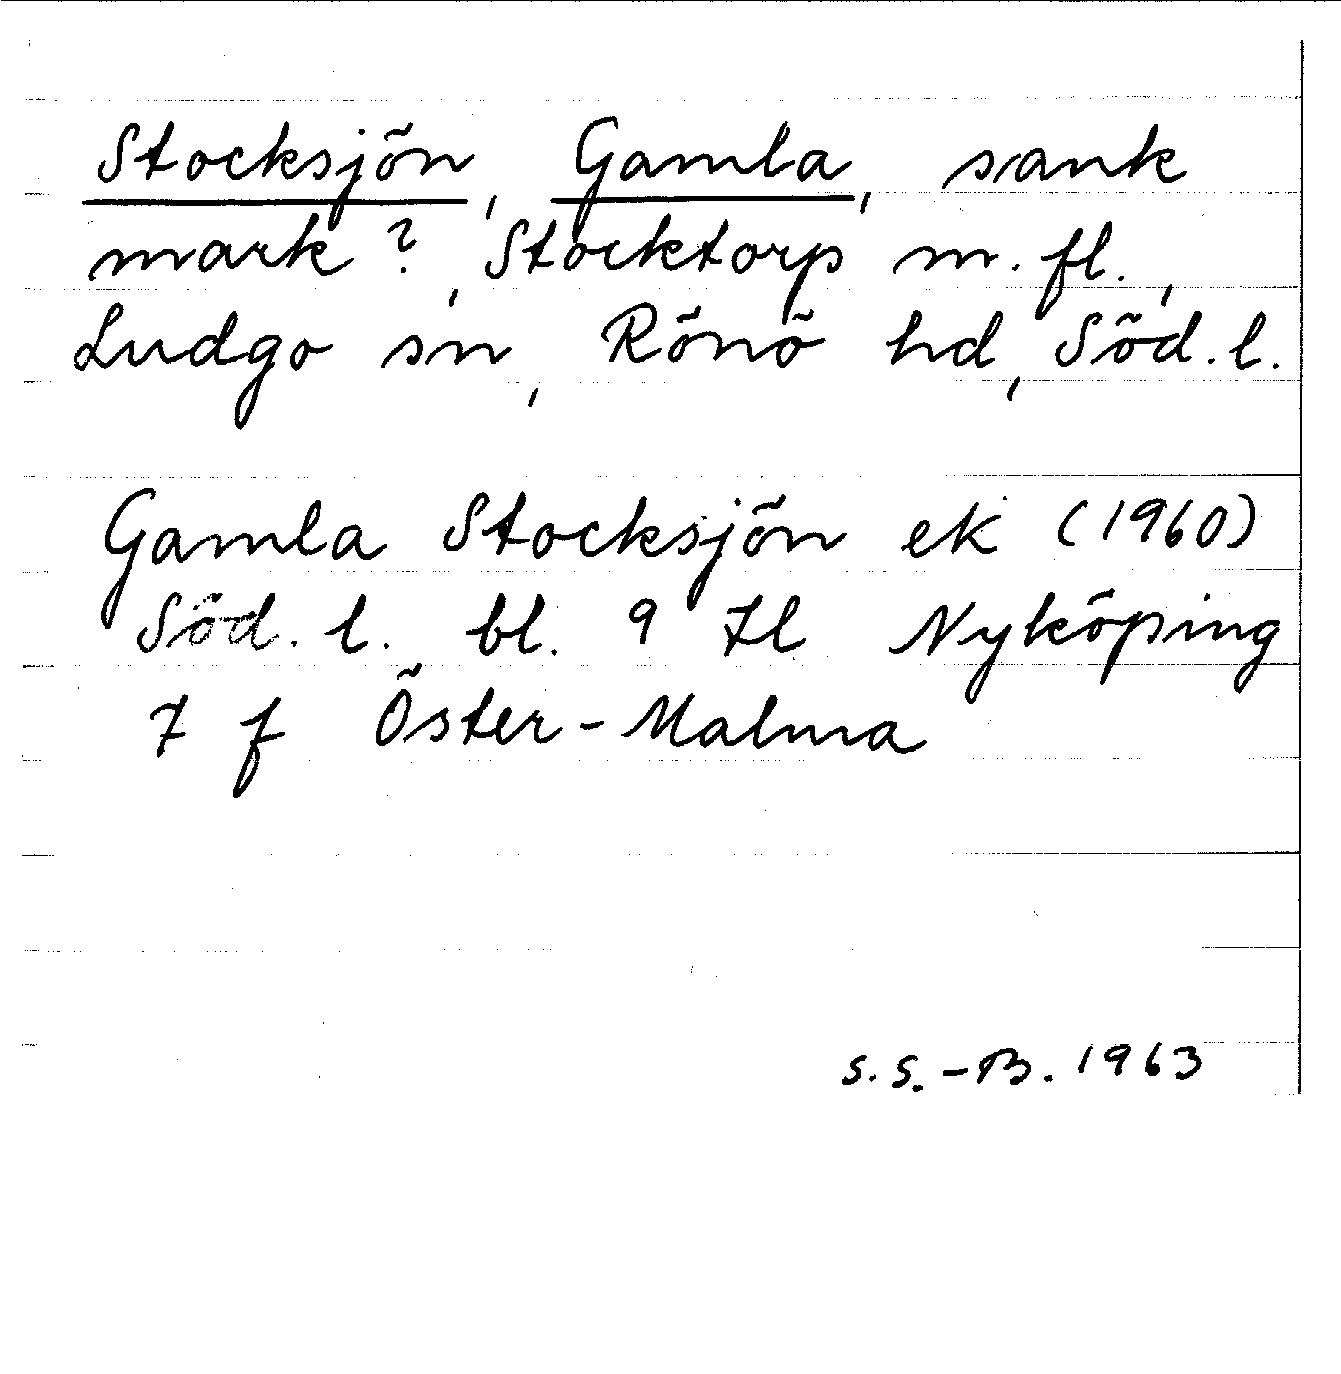 Stocksjön, Gamla, sank
mark?, Stocktorp m. fl.,
Ludgo sn, Rönö hd, Söd. l.
Gamla Stocksjön ek (1960)
Söd. l. bl. 9 Il Nyköping
7 f Öster-Malma
S. S.-B. 1963